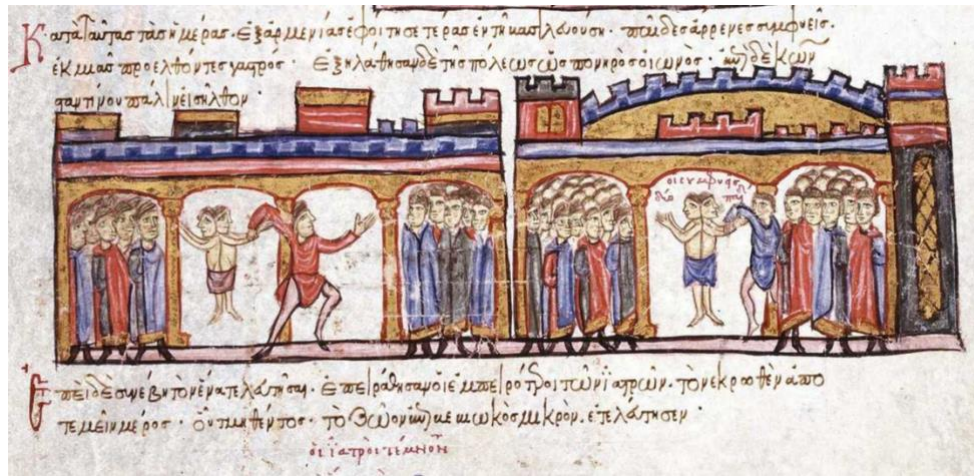 Κατὰ ταύτας τὰς ἡμέρας· ἐξ ἀρμενίας ἐφοίτησε τέρας ἐν τῇ βασιλευούση· παῖδες ἄρρενες συμφυεῖς·
ἐκ μιᾶς προελθόντες γαστρός· ἐξηλάθησαν δὲ τῆς πόλεως ὡς πονηρὸς οἰωνός· δὲ κων
σταντίνου πάλιν εἰσῆλθον·
οἱ συμφυεῖς
Ἐπεὶ δὲ συνέβη τὸν ἕνα τελευτῆσαι· ἐπειράθησαν οἱ ἐμπειρότεροι τῶν ἰατρῶν· τὸ νεκρωθὲν ἀπο
τεμεῖν μέρος· οὗ τμηθέντος· τὸ ζῶον μικρὸν· ἐτελεύτησεν·
οἱ ἰατροὶ